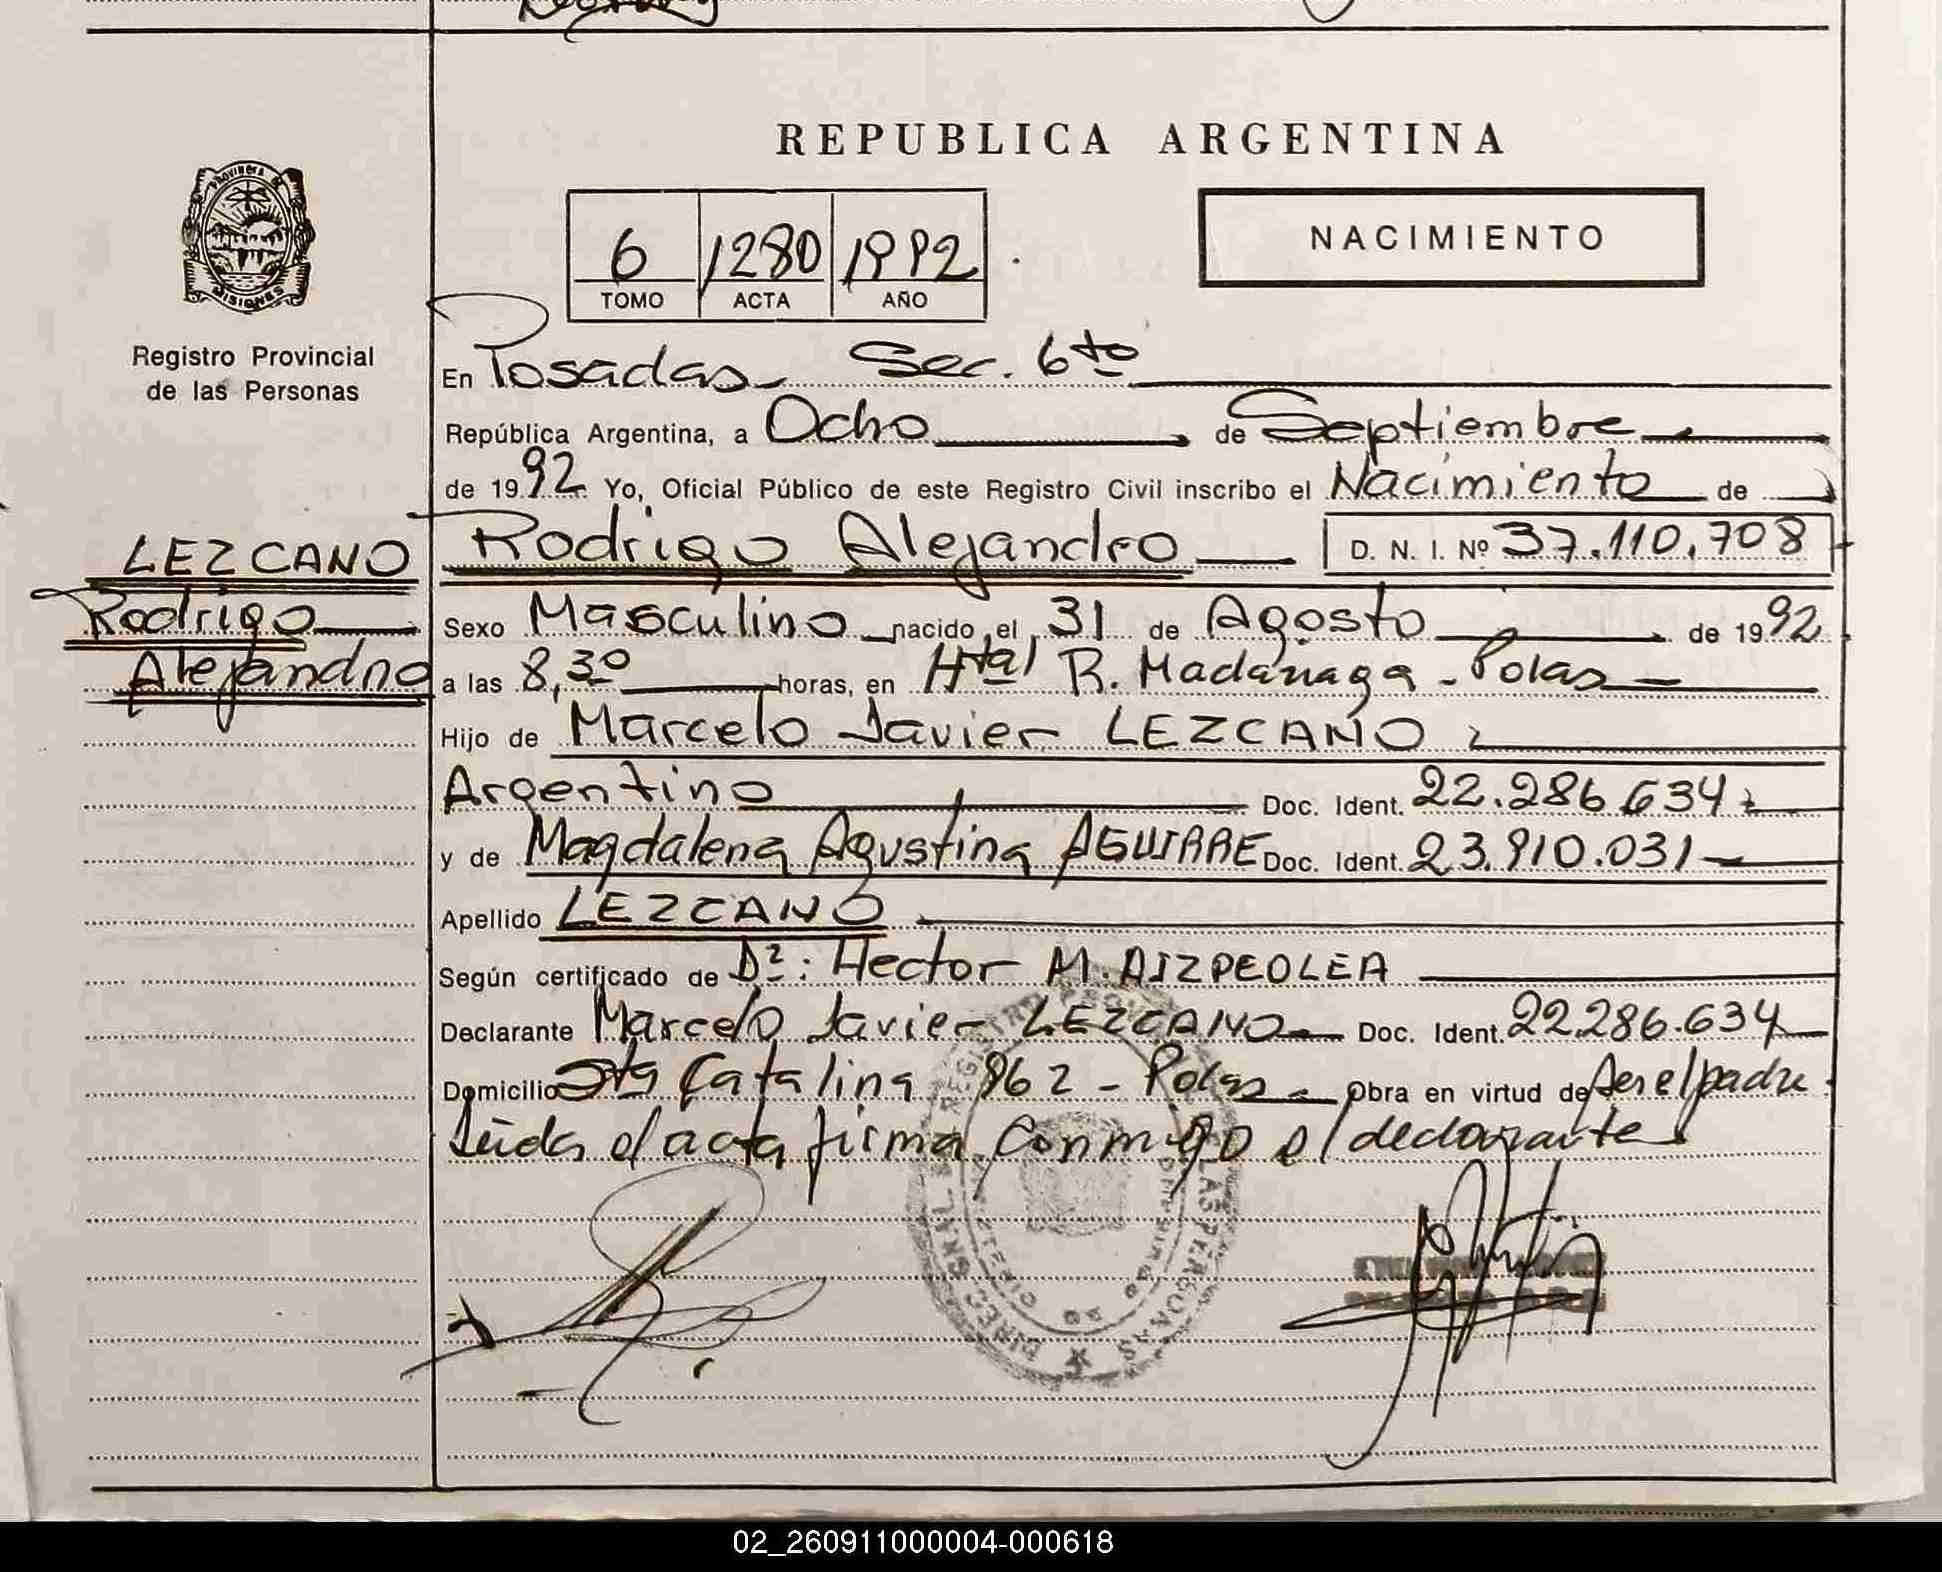 REPUBLICA ARGENTINA
PROVINCIA DE
MISIONES
6 1280 1992
TOMO ACTA AÑO
NACIMIENTO
Registro Provincial
de las Personas
En Posadas Sec. 6to
República Argentina, a Ocho de Septiembre
de 1992 Yo, Oficial Público de este Registro Civil inscribo el Nacimiento de
LEZCANO
Rodrigo
Alejandro
Rodrigo Alejandro D. N. I. Nº 37.110.708
Sexo Masculino nacido el 31 de Agosto de 1992
a las 8,30 horas, en Htal R. Madariaga - Pdas
Hijo de Marcelo Javier LEZCANO
Argentino Doc. Ident. 22.286.634
y de Magdalena Agustina AGUIRRE Doc. Ident. 23.910.031
Apellido LEZCANO
Según certificado de Dr: Hector M. AIZPEOLEA
Declarante Marcelo Javier LEZCANO Doc. Ident. 22.286.634
Domicilio Sta Catalina 962 - Pdas Obra en virtud de ser el padre.
Leida el acta firma conmigo el declarante
LAS PERSONAS
02_260911000004-000618